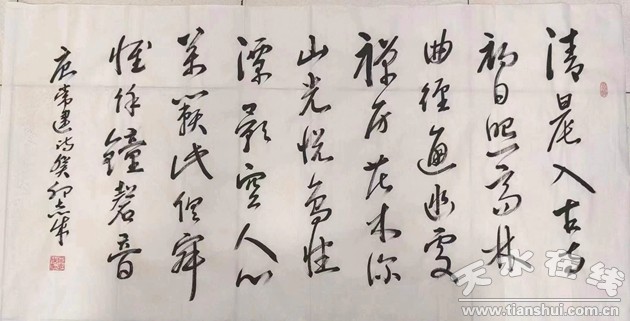 清晨入古寺
初日照高林
曲徑通幽處
禪房花木深
山光悦鳥性
潭影空人心
萬籟此俱寂
惟余鐘磬音
唐常建詩癸卯
天水在线
www.tianshui.com.cn